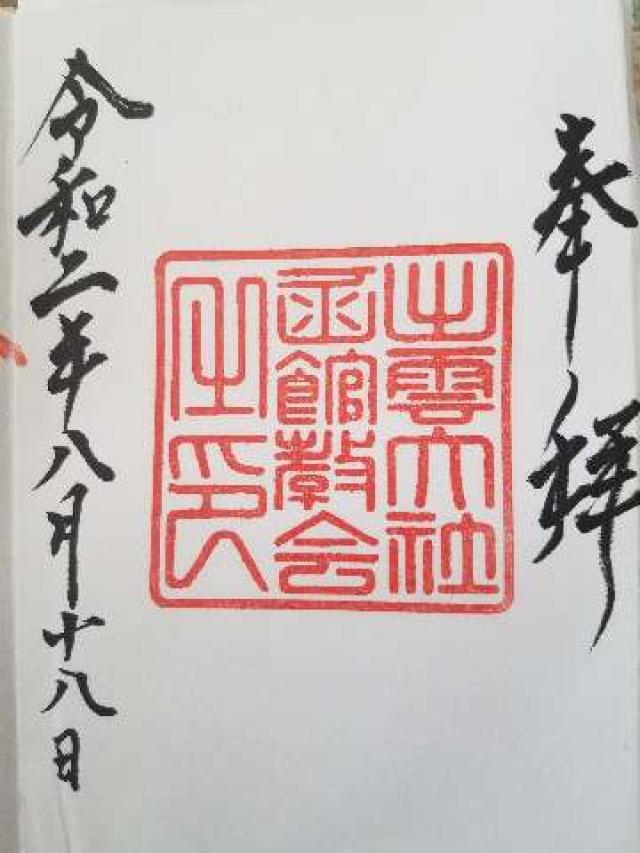 奉拝
出雲大社
函館教会
之印
令和二年八月十八日